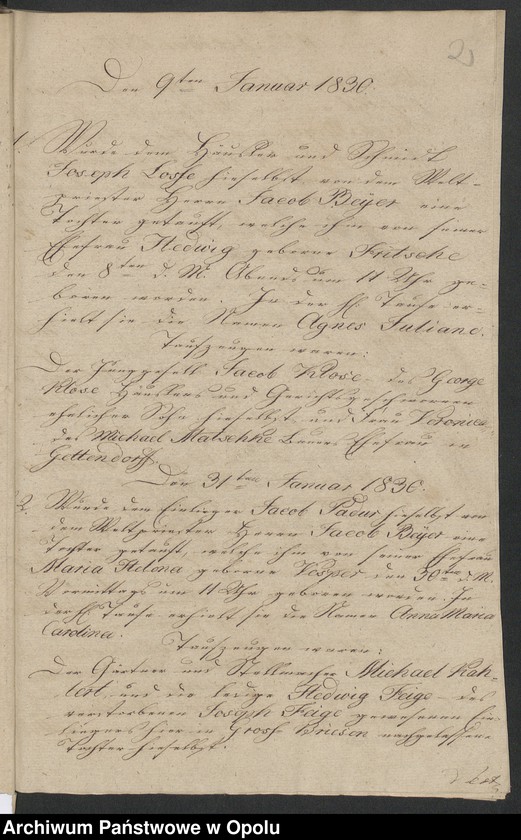 2
Den 9ten Januar 1830.
1. Wurde dem Häusler und Schmidt
Joseph Losse hieselbst von dem Welt-
priester Herrn Jacob Beÿer eine
Tochter getauft, welche ihm von seiner
Ehefrau Hedwig geborne Fritsche
den 8ten d. M. Abends um 11 Uhr ge-
boren worden. In der hl. Taufe er-
hielt sie die Namen Agnes Juliane.
Taufzeugen waren:
Der Junggesell Jacob Klose des George
Klose Häuslers und Gerichtsgeschwornen
ehelicher Sohn hieselbst und Frau Veronica
des Michael Matschke Bauers Ehefrau in
Gettendorf.
Den 31ten Januar 1830.
2. Wurde dem Einlieger Jacob hieselbst von
dem Weltpriester Herrn Jacob Beÿer eine
Tochter getauft, welche ihm von seiner Ehefrau
Maria Helena geborne Vesper den 30ten d. M.
Vormittags um 11 Uhr geboren worden. In
der hl. Taufe erhielt sie die Namen Anna Maria
Carolina.
Taufzeugen waren:
Der Gärtner und Stellmacher Michael Kah-
lert und die ledige Hedwig Feige des
verstorbenen Joseph Feige gewesenen Ein-
liegers hier in Gross Briesen nachgelassene
Tochter hieselbst.
Archiwum Państwowe w Opolu